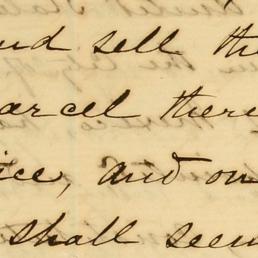 and sell the
arcel there
ice, and on
shall seem